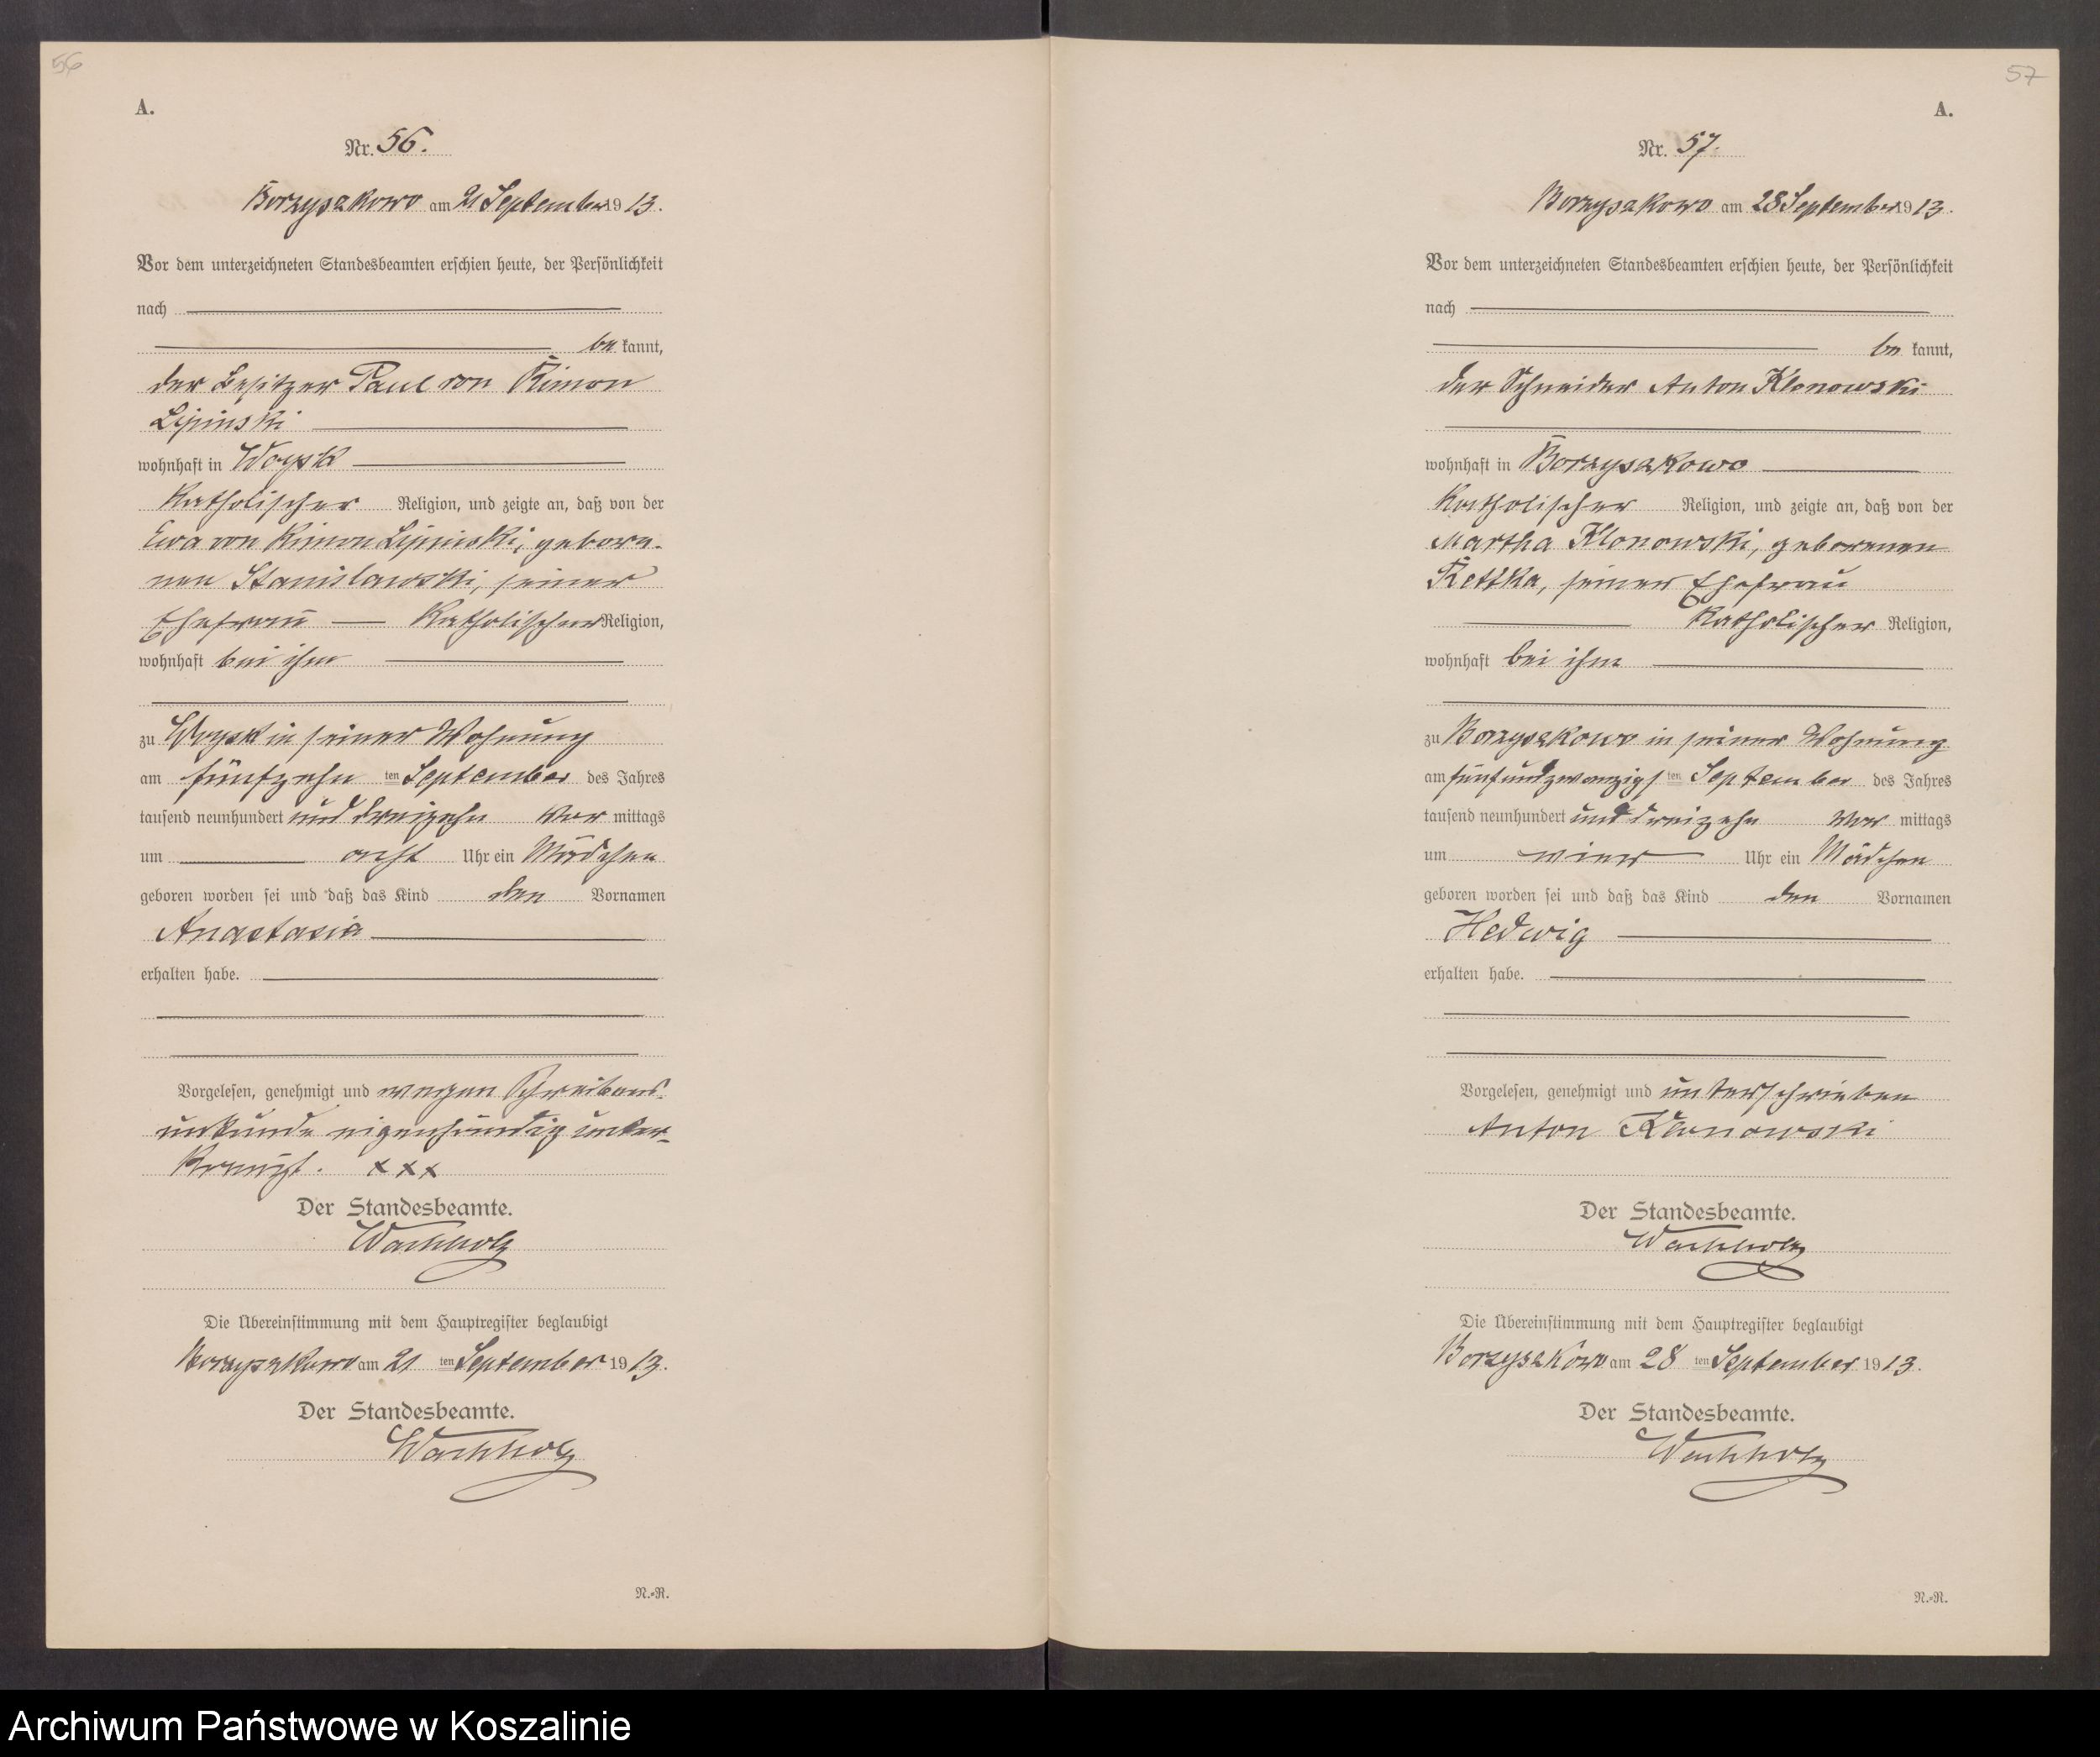 56
A.
Nr. 56.
Borzyszkowo am 21 September 1913.
Vor dem unterzeichneten Standesbeamten erschien heute, der Persönlichkeit
nach
be kannt,
der Besitzer Paul von Kimon
Lipinski
wohnhaft in Woysk
Katholischer Religion, und zeigte an, daß von der
Ewa von Kimon Lipinski, gebore-
nen Stanislawski, seiner
Ehefrau Katholischer Religion,
wohnhaft bei ihm
zu Woysk in seiner Wohnung
am fünfzehn ten September des Jahres
tausend neunhundert und dreizehn Vor mittags
um acht Uhr ein Mädchen
geboren worden sei und daß das Kind den Vornamen
Anastasia
erhalten habe.
Vorgelesen, genehmigt und wegen Schreibens-
unkunde eigenhändig unter-
kreuzt. xxx
Der Standesbeamte.
Wachholz
Die Übereinstimmung mit dem Hauptregister beglaubigt
Borzyszkowo am 21 ten September 1913.
Der Standesbeamte.
Wachholz
N.-R.
57
A.
Nr. 57.
Borzyszkowo am 28 September 1913.
Vor dem unterzeichneten Standesbeamten erschien heute, der Persönlichkeit
nach
be kannt,
der Schneider Anton Klonowski
wohnhaft in Borzyszkowo
Katholischer Religion, und zeigte an, daß von der
Martha Klonowski, geborenen
Rettka, seiner Ehefrau
Katholischer Religion,
wohnhaft bei ihm
zu Borzyszkowo in seiner Wohnung
am fünfundzwanzigs ten September des Jahres
tausend neunhundert und dreizehn Vor mittags
um vier Uhr ein Mädchen
geboren worden sei und daß das Kind den Vornamen
Hedwig
erhalten habe.
Vorgelesen, genehmigt und unterschrieben
Anton Klonowski
Der Standesbeamte.
Wachholz
Die Übereinstimmung mit dem Hauptregister beglaubigt
Borzyszkowo am 28 ten September 1913.
Der Standesbeamte.
Wachholz
N.-R.
Archiwum Państwowe w Koszalinie